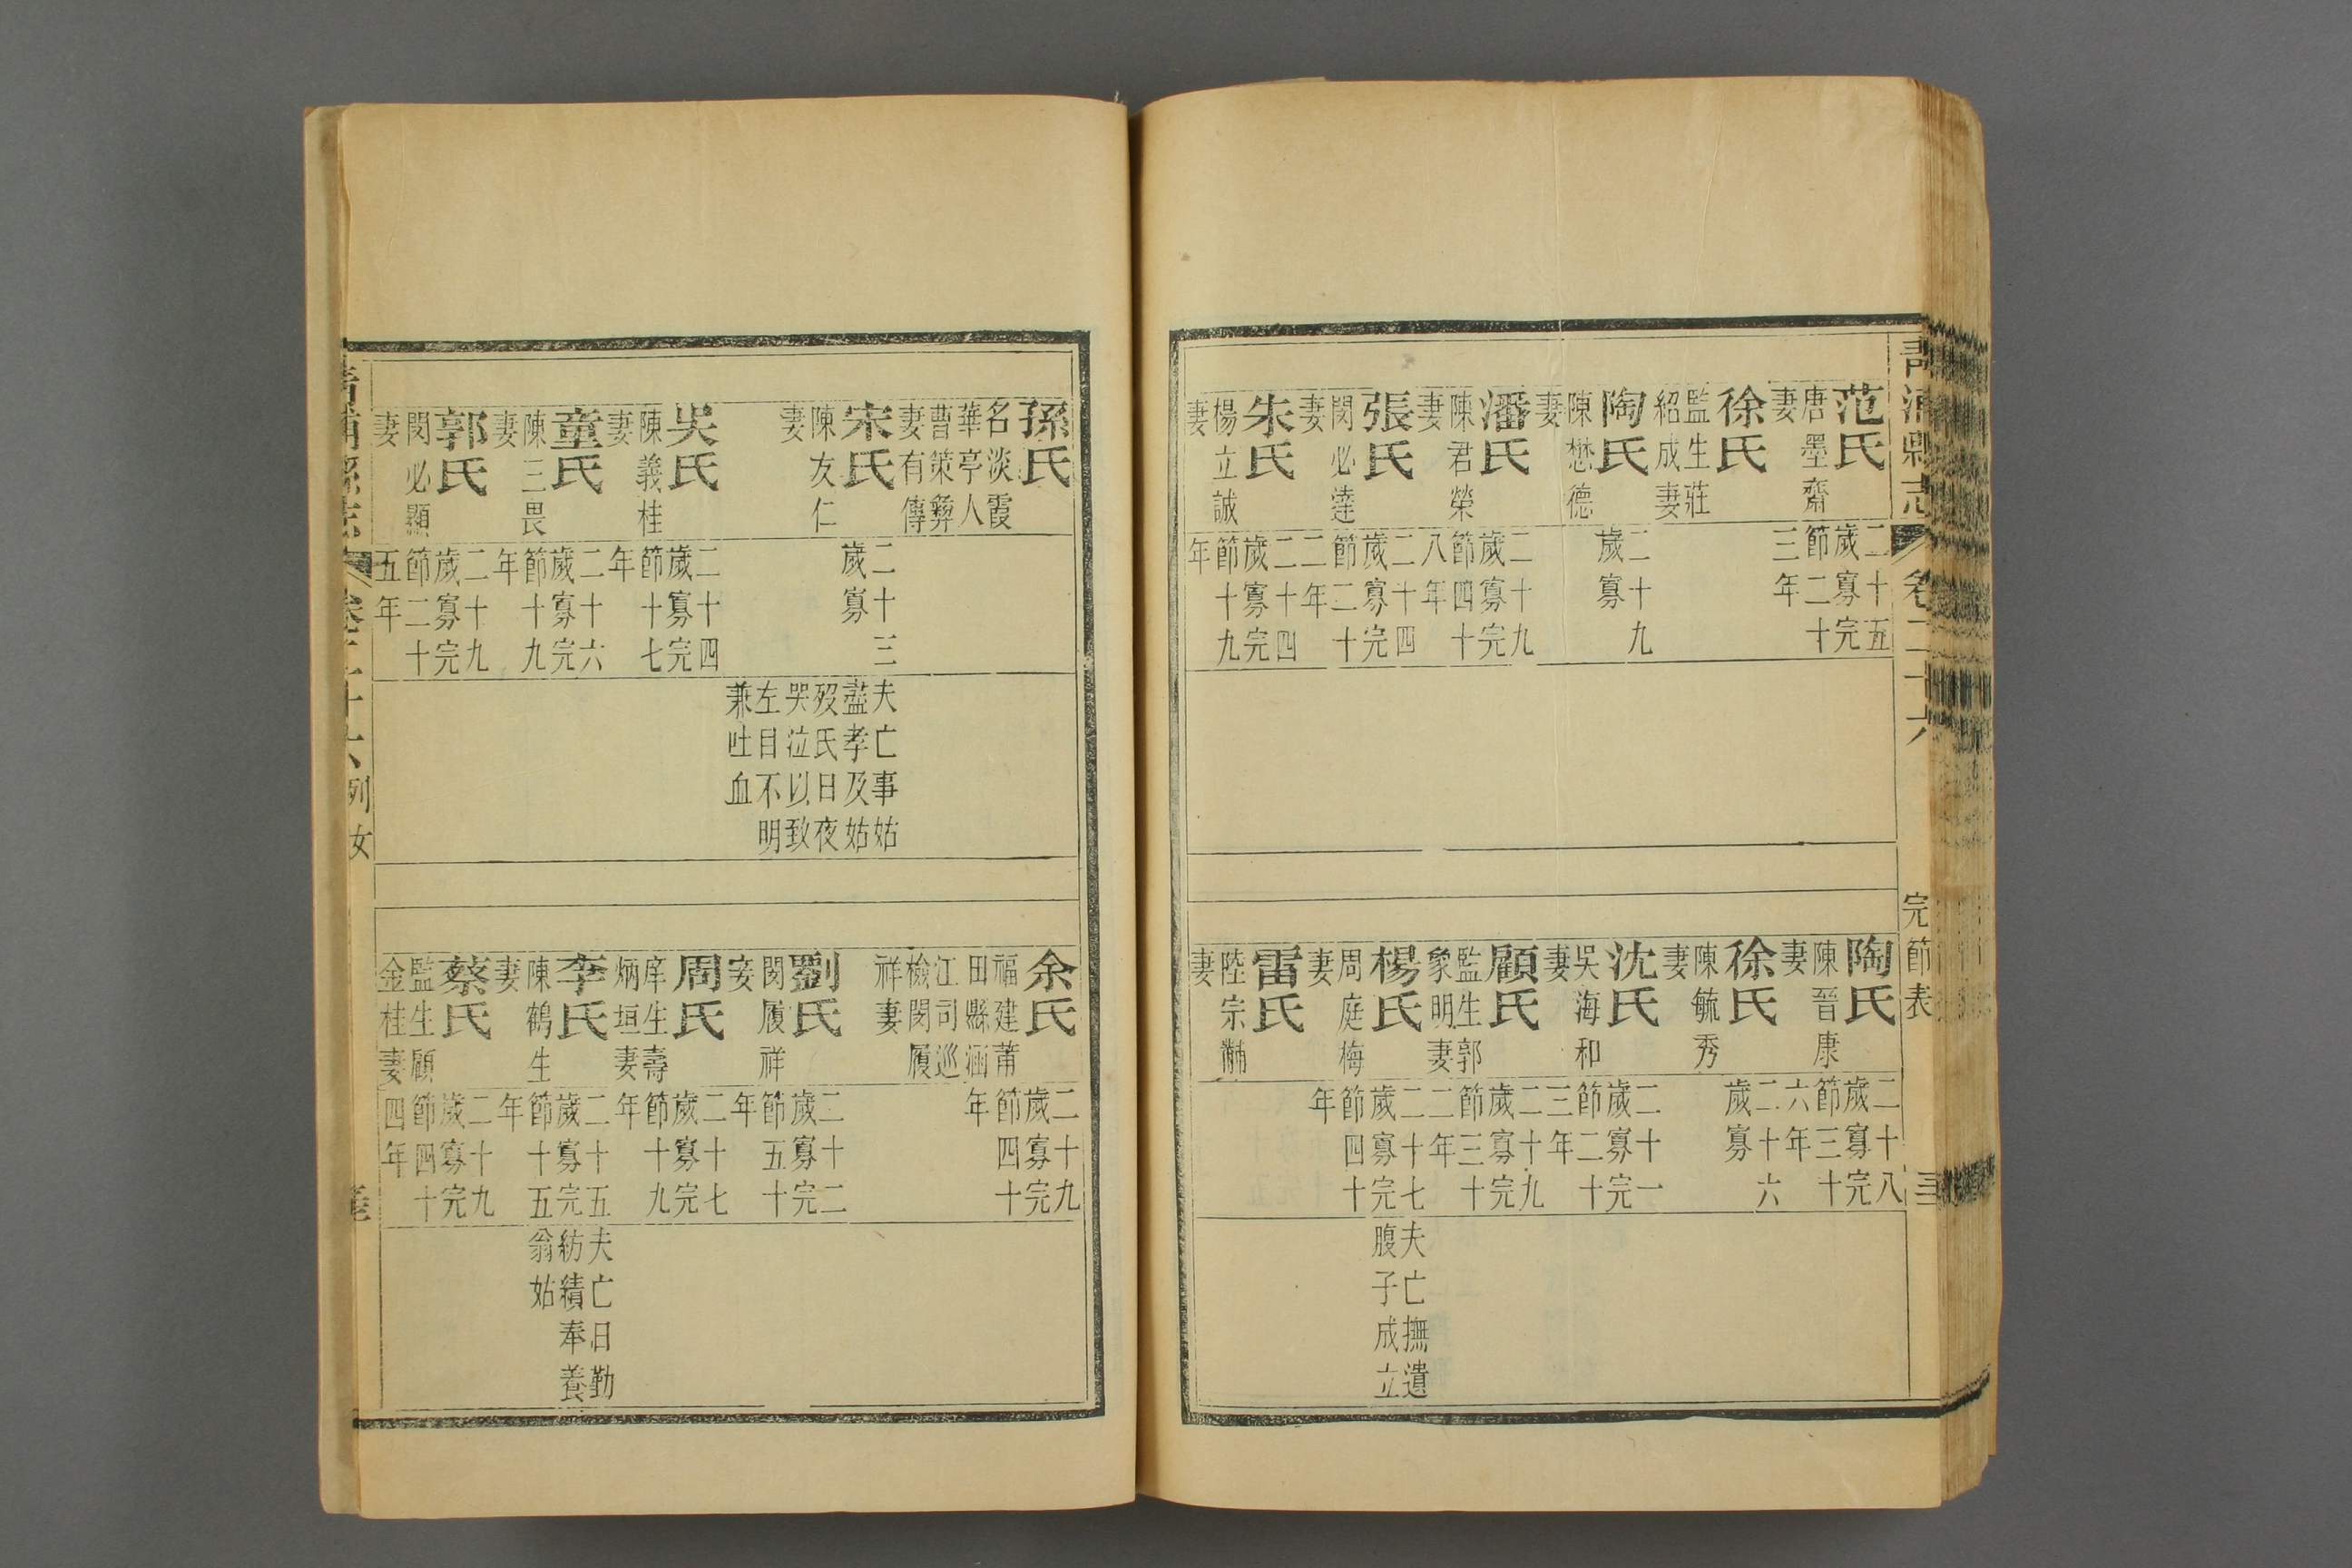 青浦縣志
卷二十六
完節表
范氏
唐墨齋
妻
二十五
歲寡完
節二十
三年
徐氏
監生莊
紹成妻
陶氏
陳懋德
妻
二十九
歲寡
潘氏
陳君榮
妻
二十九
歲寡完
節四十
八年
張氏
閔必達
妻
二十四
歲寡完
節二十
二年
朱氏
楊立誠
妻
二十四
歲寡完
節十九
年
陶氏
陳晉康
妻
二十八
歲寡完
節三十
六年
徐氏
陳毓秀
妻
二十六
歲寡
沈氏
吳海和
妻
二十一
歲寡完
節二十
三年
顧氏
監生郭
象明妻
二十九
歲寡完
節三十
二年
楊氏
周庭梅
妻
二十七
歲寡完
節四十
年
夫亡撫遺
腹子成立
雷氏
陸宗黼
妻
孫氏
名淡霞
華亭人
曹策彝
妻有傳
宋氏
陳友仁
妻
二十三
歲寡
夫亡事姑
盡孝及姑
歿氏日夜
哭泣以致
左目不明
兼吐血
吳氏
陳義桂
妻
二十四
歲寡完
節十七
年
童氏
陳三畏
妻
二十六
歲寡完
節十九
年
郭氏
閔必顯
妻
二十九
歲寡完
節二十
五年
余氏
福建莆
田縣涵
江司巡
檢閔履
祥妻
二十九
歲寡完
節四十
年
劉氏
閔履祥
妾
二十二
歲寡完
節五十
年
周氏
庠生壽
炳垣妻
二十七
歲寡完
節十九
年
李氏
陳鶴生
妻
二十五
歲寡完
節十五
年
夫亡日勤
紡績奉養
翁姑
蔡氏
監生顧
金桂妻
二十九
歲寡完
節四十
四年
青浦縣志
卷二十六
列女